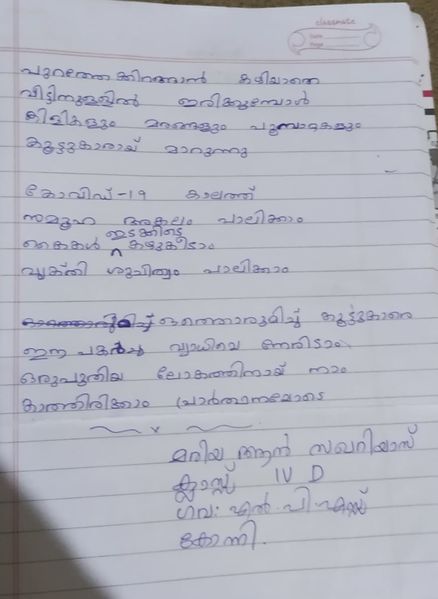 classmate
Date
Page
പുറത്തേക്കിറങ്ങാൻ കഴിയാതെ
വീട്ടിനുള്ളിൽ ഇരിക്കുമ്പോൾ
കിളികളും മരങ്ങളും പൂമ്പാറ്റകളും
കൂട്ടുകാരായ് മാറുന്നു
കോവിഡ്-19 കാലത്ത്
സമൂഹ അകലം പാലിക്കാം
ഇടക്കിടെ
കൈകൾ ^ കഴുകീടാം
വ്യക്തി ശുചിത്വം പാലിക്കാം
ഒത്തൊരുമിച്ച് കൂട്ടുകാരെ
ഈ പകർച്ച വ്യാധിയെ നേരിടാം
ഒരുപുതിയ ലോകത്തിനായ് നാം
കാത്തിരിക്കാം പ്രാർത്ഥനയോടെ
മരിയ ആൻ സഖറിയാസ്
ക്ലാസ്സ് IV D
ഗവ: എൽ.പി.എസ്സ്
കോന്നി.